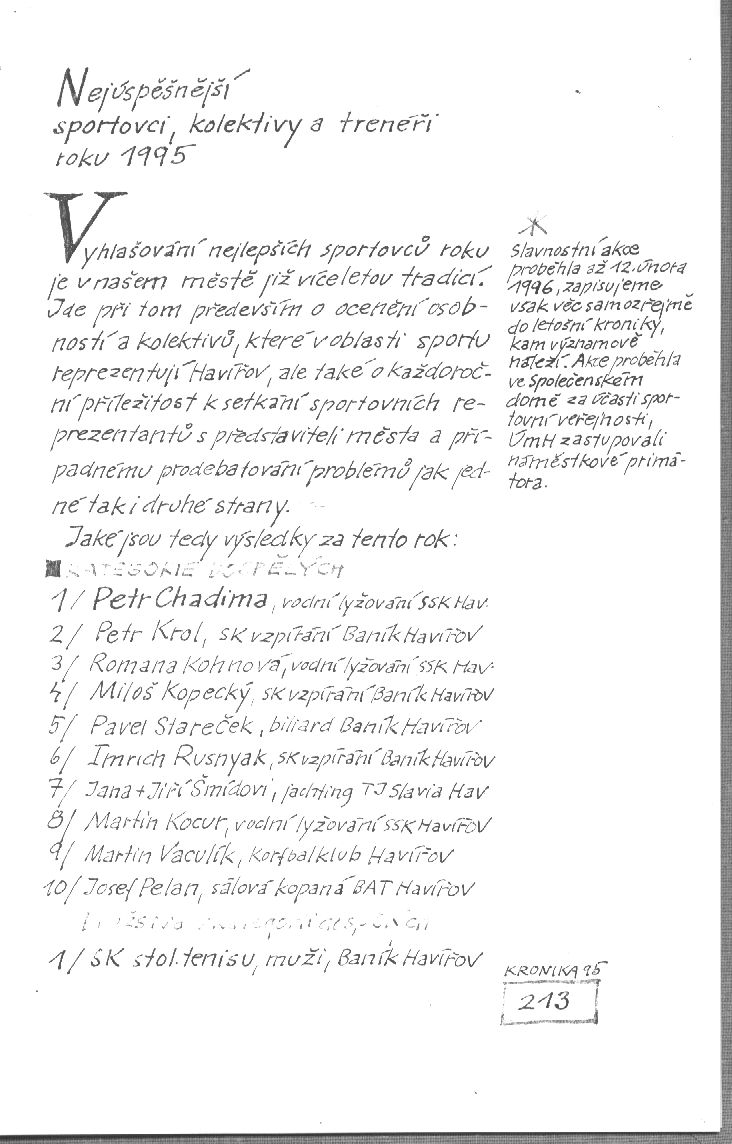 Nejúspěšnější
sportovci, kolektivy a trenéři
roku 1995
Vyhlašování nejlepších sportovců roku
je v našem městě již víceletou tradicí.
Jde při tom především o ocenění osob-
ností a kolektivů, které v oblasti sportu
reprezentují Havířov, ale také o každoroč-
ní příležitost k setkání sportovních re-
prezentantů s představiteli města a pří-
padnému prodebatování problémů jak jed-
né tak i druhé strany.
Jaké jsou tedy výsledky za tento rok:
KATEGORIE DOSPĚLÝCH
1/ Petr Chadima, vodní lyžování SSK Hav.
2/ Petr Krol, SK vzpírání Baník Havířov
3/ Romana Kohnová, vodní lyžování SSK Hav.
4/ Miloš Kopecký, SK vzpírání Baník Havířov
5/ Pavel Stareček, biliard Baník Havířov
6/ Imrich Rusnyak, SK vzpírání Baník Havířov
7/ Jana + Jiří Šmídovi, jachting TJ Slavia Hav
8/ Martin Kocur, vodní lyžování SSK Havířov
9/ Martin Vaculík, Korfbalklub Havířov
10/ Josef Pelan, sálová kopaná BAT Havířov
1/ SK stol. tenisu, muži, Baník Havířov
*
Slavnostní akce
proběhla až 12. února
1996, zapisujeme
však věc samozřejmě
do letošní kroniky,
kam významově
náleží. Akce proběhla
ve Společenském
domě za účasti spor-
tovní veřejnosti,
ÚmH zastupovali
náměstkové primá-
tora.
KRONIKA 95
213